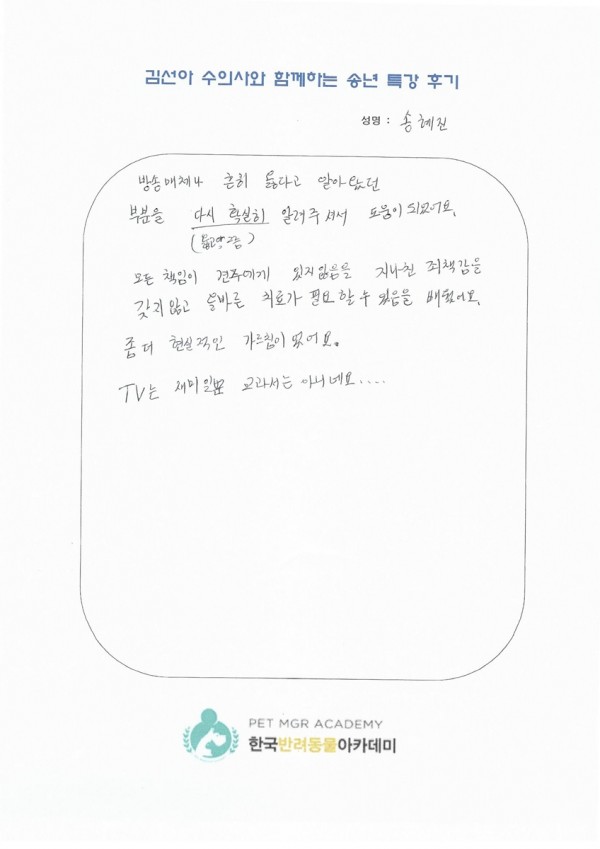 김선아 수의사와 함께하는 송년 특강 후기
성명 : 송혜진
방송매체나 흔히 옳다고 알아왔던
부분을 다시 확실히 알려주셔서 도움이 되었어요.
모든 책임이 견주에게 있지않음을 지나친 죄책감을
갖지않고 올바른 치료가 필요할 수 있음을 배웠어요.
좀더 현실적인 가르침이었어요.
TV는 재미일뿐 교과서는 아니네요....
PET MGR ACADEMY
한국반려동물아카데미